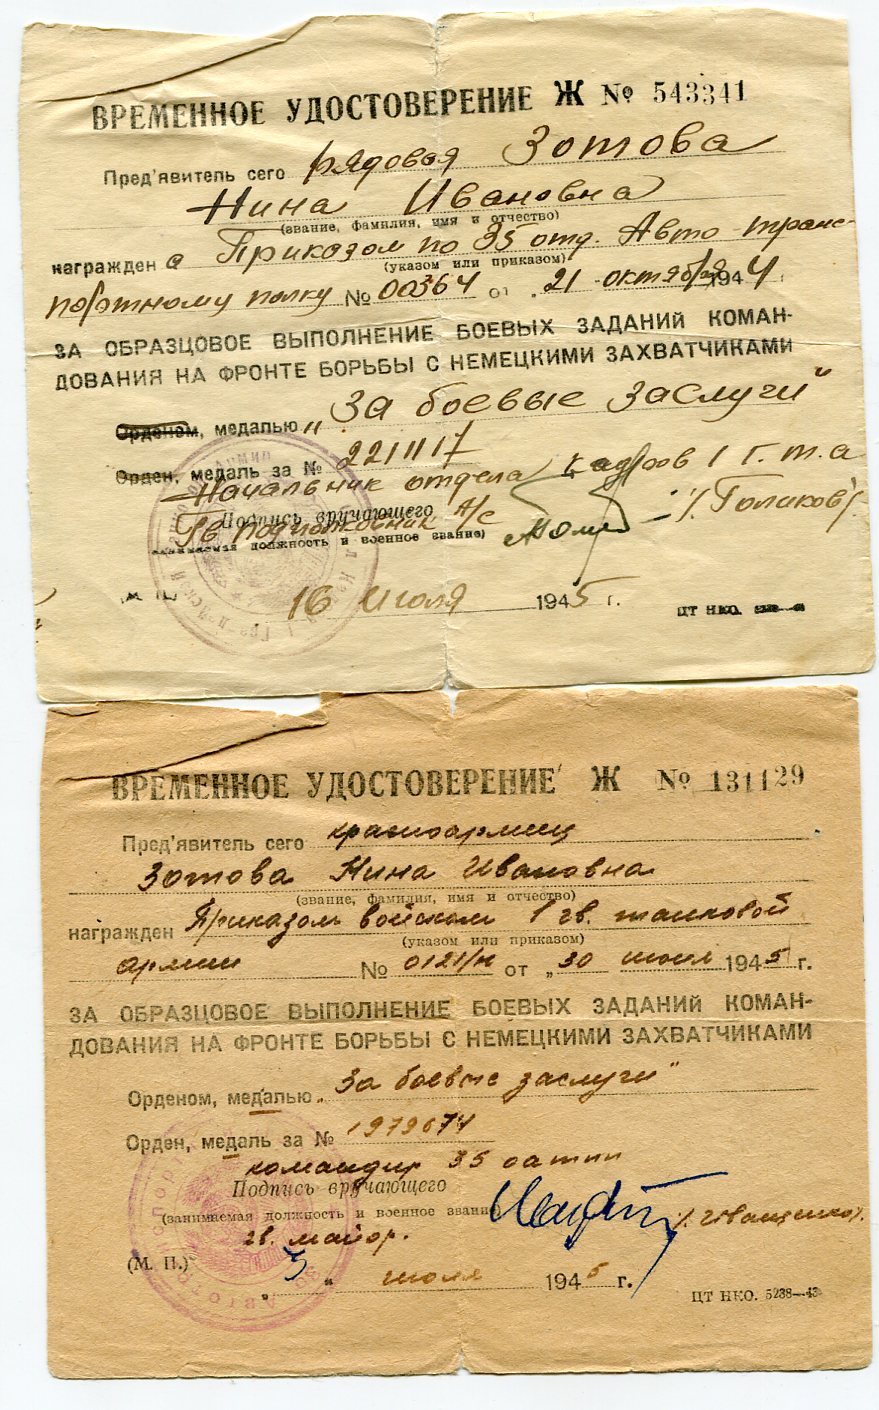 ВРЕМЕННОЕ УДОСТОВЕРЕНИЕ Ж № 543341
Пред'явитель сего рядовая Зотова
Нина Ивановна
(звание, фамилия, имя и отчество)
награжден а Приказом по 35 отд. Авто транс-
(указом или приказом)
портному полку № 00364 от „21 октября 1944
ЗА ОБРАЗЦОВОЕ ВЫПОЛНЕНИЕ БОЕВЫХ ЗАДАНИЙ КОМАН-
ДОВАНИЯ НА ФРОНТЕ БОРЬБЫ С НЕМЕЦКИМИ ЗАХВАТЧИКАМИ
Орденом, медалью „За боевые заслуги"
Орден, медаль за № 2211117
Начальник отдела кадров 1 г.т.а
Подпись вручающего
Гв подполковник А/с /Голиков/.
занимаемая должность и военное звание)
16 Июля 1945 г.
ЦТ НКО.
ВРЕМЕННОЕ УДОСТОВЕРЕНИЕ Ж № 131129
Пред'явитель сего красноармеец
Зотова Нина Ивановна
(звание, фамилия, имя и отчество)
награжден Приказом войскам 1 гв. танковой
(указом или приказом)
армии № 0121/н от „30 июня 1945 г.
ЗА ОБРАЗЦОВОЕ ВЫПОЛНЕНИЕ БОЕВЫХ ЗАДАНИЙ КОМАН-
ДОВАНИЯ НА ФРОНТЕ БОРЬБЫ С НЕМЕЦКИМИ ЗАХВАТЧИКАМИ
Орденом, медалью „За боевые заслуги"
Орден, медаль за № 1979674
командир 35 оатпп
Подпись вручающего
(занимаемая должность и военное звание) /Иващенко/.
гв. майор.
(М. П.)
„ 5 " июля 1945 г.
ЦТ НКО. 5238—43